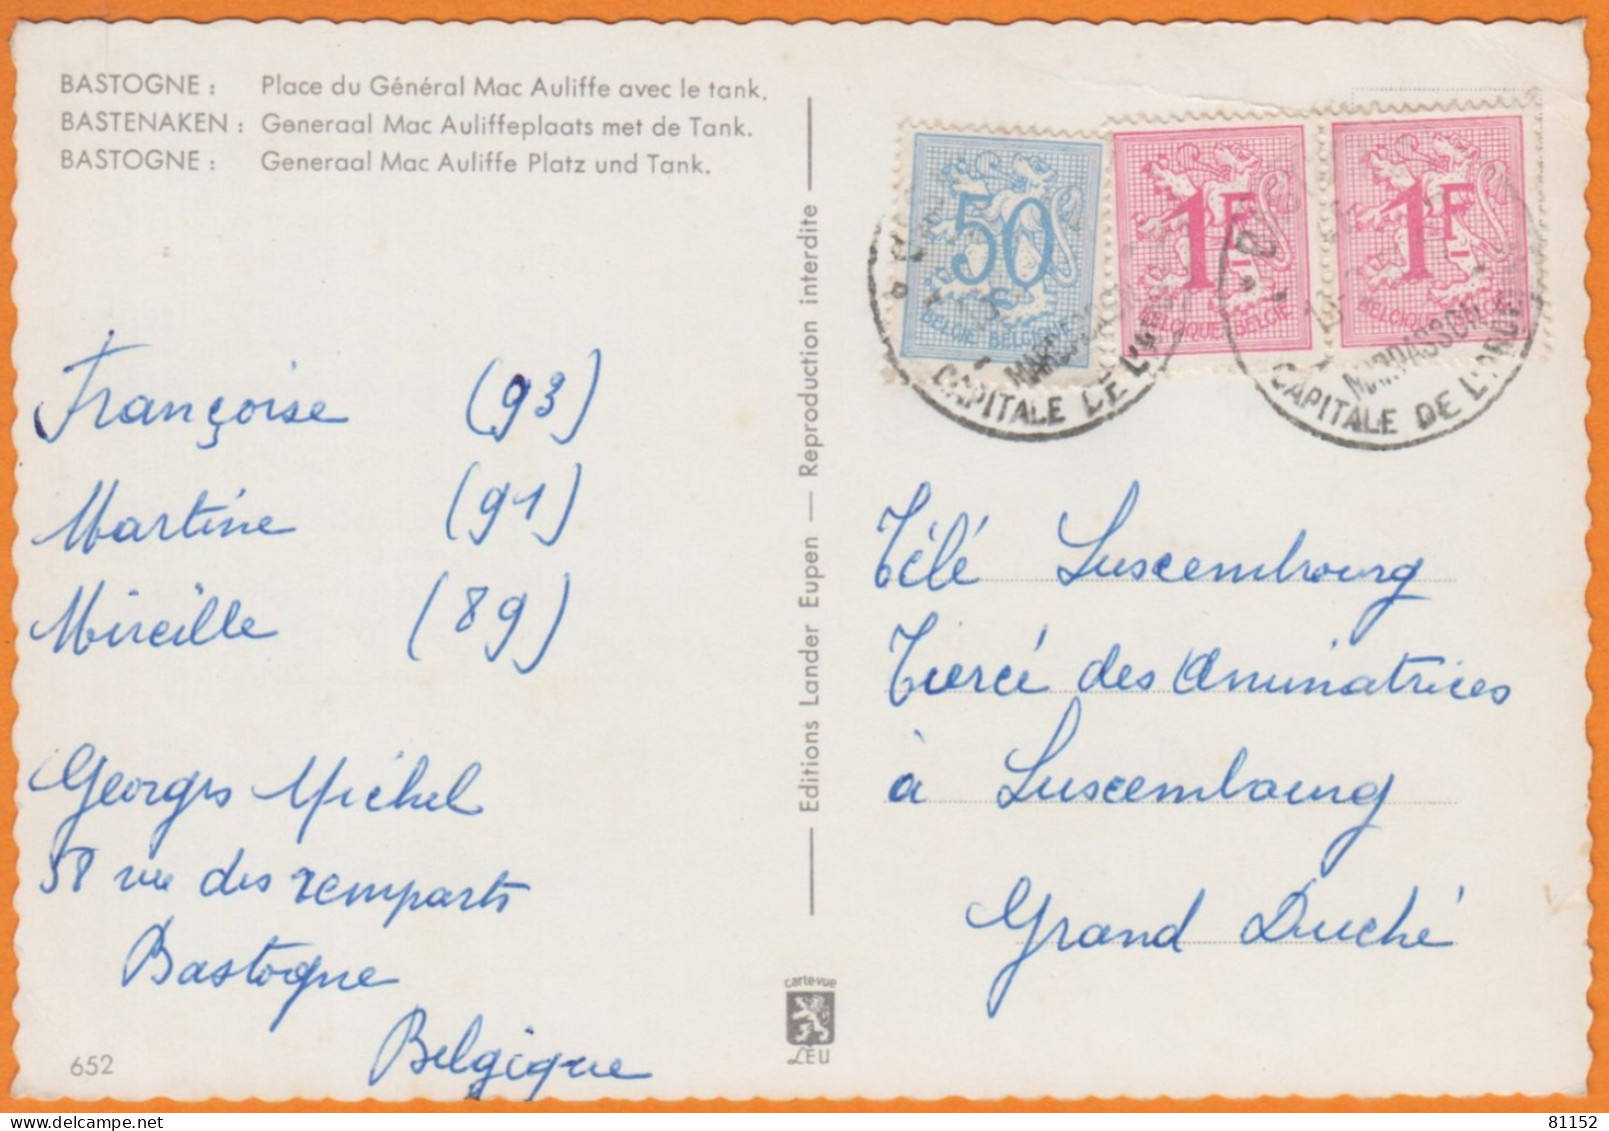 BASTOGNE : Place du Général Mac Auliffe avec le tank.
BASTENAKEN : Generaal Mac Auliffeplaats met de Tank.
BASTOGNE : Generaal Mac Auliffe Platz und Tank.
Françoise (93)
Martine (91)
Mireille (89)
Georges Michel
58 rue des remparts
Bastogne
Belgique
652
Editions Lander Eupen — Reproduction interdite
carte-vue
LEU
50
BELGIE BELGIQUE
1F
BELGIQUE BELGIE
1F
BELGIQUE
MARDASSON
CAPITALE DE
MARDASSON
CAPITALE DE
Télé Luxembourg
Tiercé des Animatrices
à Luxembourg
Grand Duché
81152